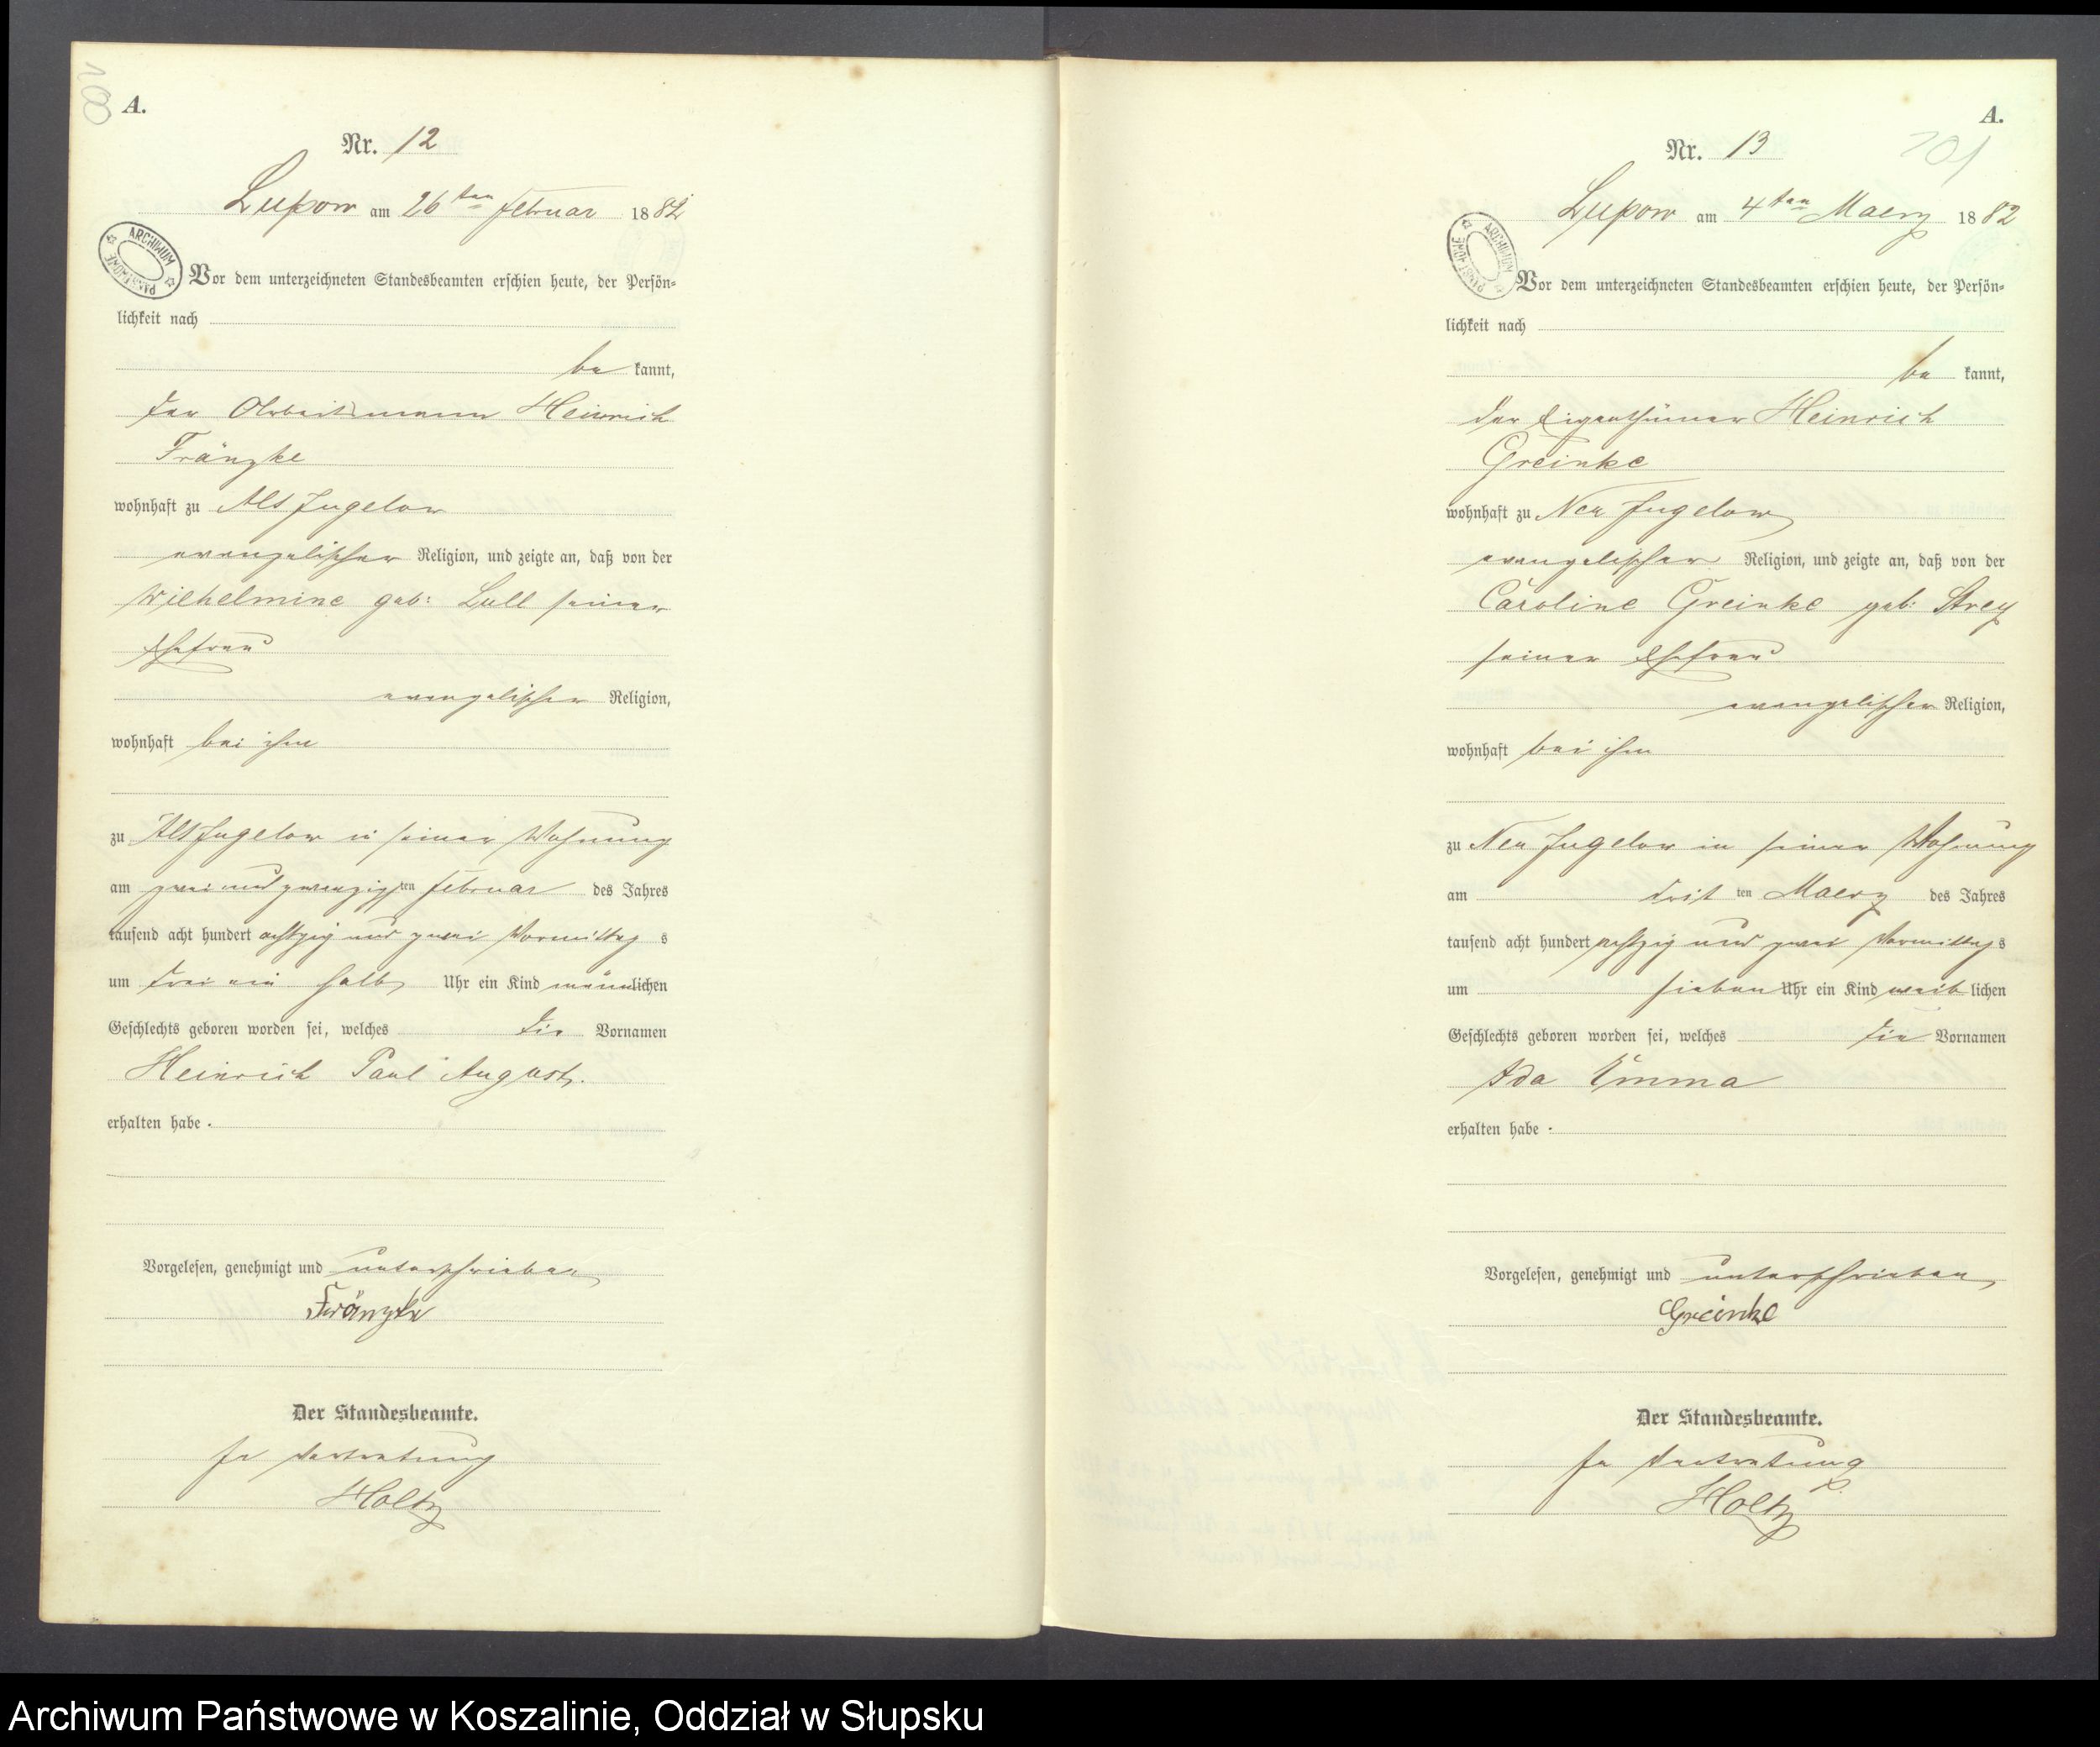 100
A.
Nr. 12
Lupow am 26ten Februar 1882
ARCHIWUM PAŃSTWOWE
Vor dem unterzeichneten Standesbeamten erschien heute, der Persön-
lichkeit nach
be kannt,
der Arbeitsmann Heinrich
Fränzke
wohnhaft zu Alt Jugelow
evangelischer Religion, und zeigte an, daß von der
Wilhelmine geb: Lull seiner
Ehefrau
evangelischer Religion,
wohnhaft bei ihm
zu Alt Jugelow in seiner Wohnung
am zwei und zwanzigsten Februar des Jahres
tausend acht hundert achtzig und zwei Vormittags
um drei ein halb Uhr ein Kind männlichen
Geschlechts geboren worden sei, welches die Vornamen
Heinrich Paul August.
erhalten habe.
Vorgelesen, genehmigt und unterschrieben
Fränzke
Der Standesbeamte.
In Vertretung
Holtz
A.
201
Nr. 13
Lupow am 4ten Maerz 1882
ARCHIWUM PAŃSTWOWE
Vor dem unterzeichneten Standesbeamten erschien heute, der Persön-
lichkeit nach
be kannt,
der Eigenthümer Heinrich
Greinke
wohnhaft zu Neu Jugelow
evangelischer Religion, und zeigte an, daß von der
Caroline Greinke geb: Strey
seiner Ehefrau
evangelischer Religion,
wohnhaft bei ihm
zu Neu Jugelow in seiner Wohnung
am drit ten Maerz des Jahres
tausend acht hundert achtzig und zwei Vormittags
um sieben Uhr ein Kind weib lichen
Geschlechts geboren worden sei, welches die Vornamen
Ida Emma
erhalten habe.
Vorgelesen, genehmigt und unterschrieben
Greinke
Der Standesbeamte.
In Vertretung
Holtz
Archiwum Państwowe w Koszalinie, Oddział w Słupsku